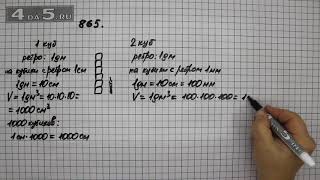 4DA5.RU
865.
1 куб
ребро: 1дм
на кубики с ребром 1см
1дм = 10см
V = 1дм³ = 10·10·10 =
= 1000см³
1000 кубиков:
1см·1000 = 1000см
2 куб
ребро: 1дм
на кубики с ребром 1мм
1дм = 10см = 100мм
V = 1дм³ = 100·100·100 = 1